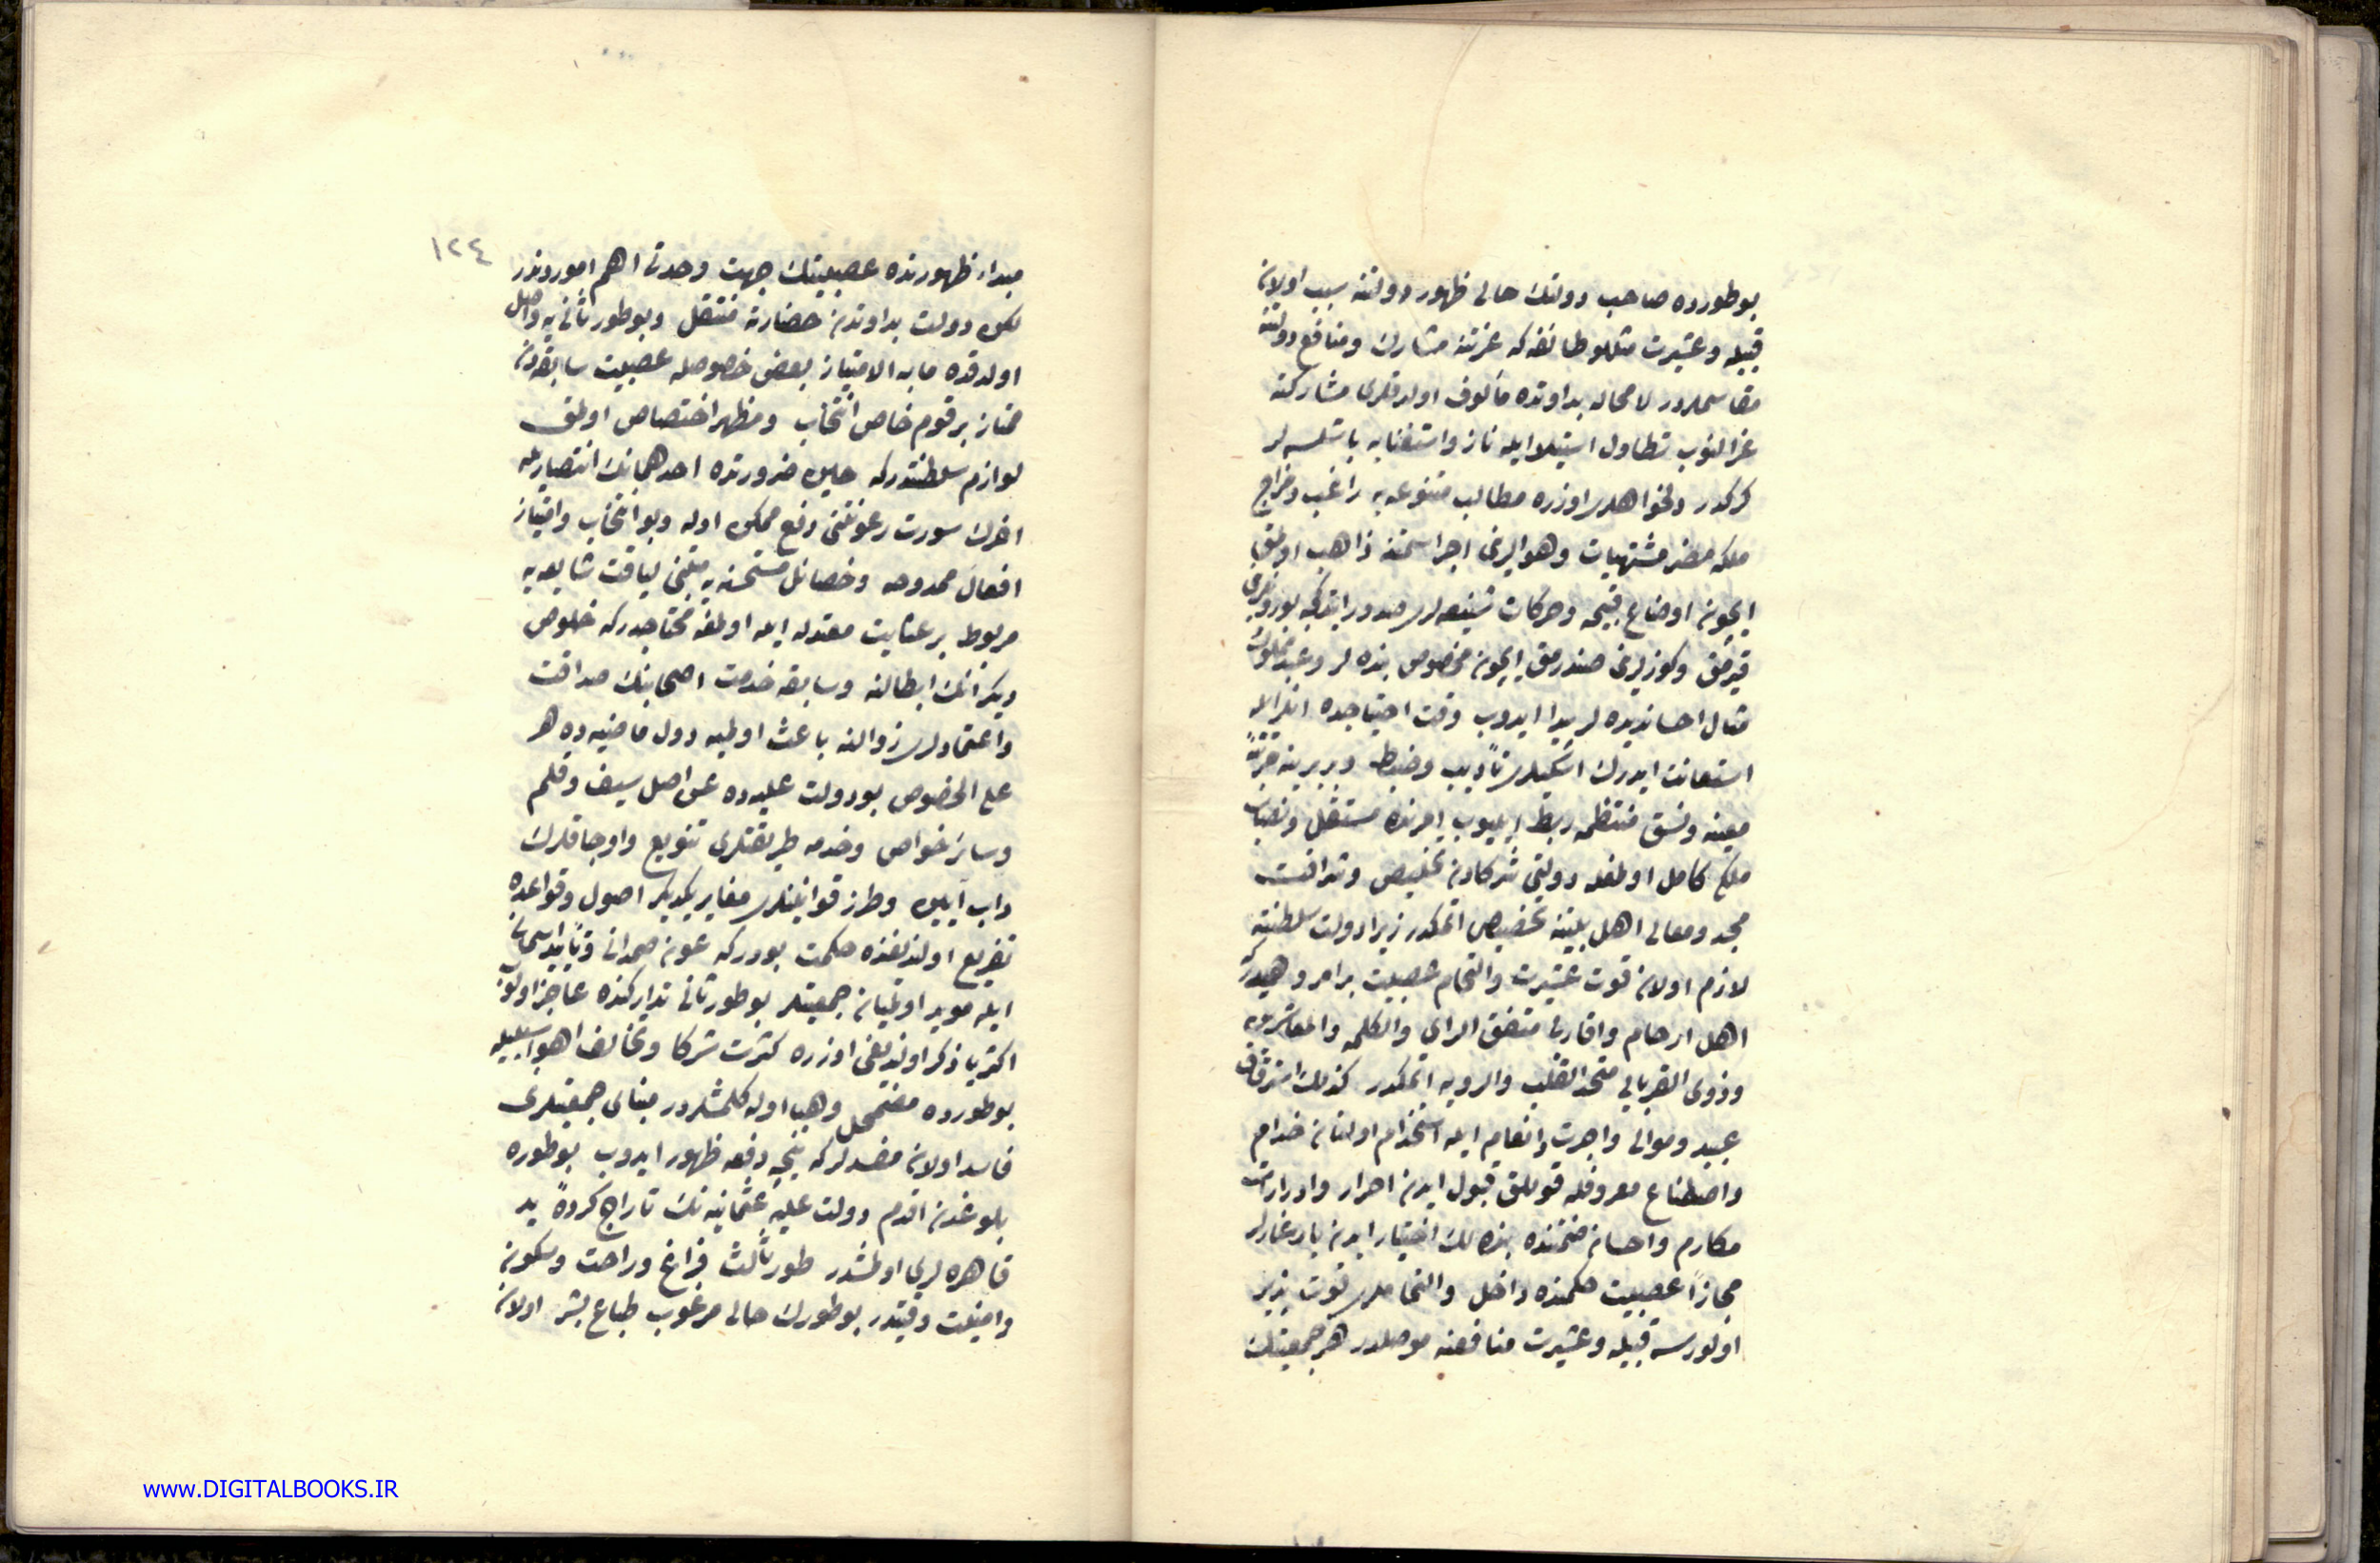 بوطورده صاحب دولتك حالى ظهور دولتنه سبب اولان
قبيله و عشيرت مثللو طائفه كه عزتنه مشارك ومنافع دولتنه
مقاسملردر لا محاله بداوتده مألوف اولدقلرى مشاركته
غرالنوب تطاول استيلا ايله ناز واستغنايه باشلسه لر
كركدر دلخواهلرى اوزره مطالب متنوعه يه راغب وخراج
ملكه مضر مشتهيات وهوالرينى اجراسمتنه ذاهب اولمق
ايچون اوضاع قبيحه وحركات شنيعه لرى صدور ايتدكجه بورونلرى
قيرمق وكوزلرينى صندرمق ايچون مخصوص بنده لر وعبد مملوك
مثال احسانديده لر پيدا ايدوب وقت احتياجده انلر ايله
استعانت ايدرك اسكيلرى تأديب وضبط وبربرينه مرتبهٔ
معينه ونسق منتظمه ربط ايليوب امرنده مستقل ونصاب
ملكى كامل اولمغله دولتى شركادن تخليص وشرافت
مجد ومعالى اهل بيتنه تخصيص اتمكدر زيرا دولت سلطنته
لازم اولان قوت عشيرت والتحام عصبيت برامر وهميدركه
اهل ارحام واقاربى متفق الراى والكلمه والمعاشره
وذوى القربايى متحد القلب والرويه اتمكدر كذلك استرقاق
عبيد وموالى واجرت وانعام ايله استخدام اولنان خدام
واصطناع معروفله قوللق قبول ايدن احرار وادرارات
مكارم واحسان ضمننده بنده لك اختيار ايدن يارغارلر
مجازاً عصبيت حكمنده داخل والتحاملرى قوت پذير
اولورسه قبيله وعشيرت منافعنه موصلدر هر جمعيتك
١٢٤
مبداء ظهورنده عصبيتك جهت وحدتى اهم اموردندر
لكن دولت بداوتدن حضارته منتقل وبوطور ثانى يه واصل
اولدقده مابه الامتياز بعض خصوصله عصبيت سابقه دن
ممتاز برقوم خاص انتخاب ومظهر اختصاص اولمق
لوازم سلطنتدركه حين ضرورتده احدهمانك انتصاريله
اخرك سورت رعونتنى دفع ممكن اوله وبو انتخاب وامتياز
افعال ممدوحه وخصائل مستحسنه يه مبتنى لياقت شايعه يه
مربوط برعنايت معتدله ايله اولمغه محتاجدركه خلوص
ديكرانك ابطالنه وسابقه خدمت اصحابنك صداقت
واعتمادلرى زوالنه باعث اولميه دول ماضيه ده هر
على الخصوص بودولت عليه ده عن اصل سيف وقلم
وسائر خواص وخدمه طريقتلرى تنويع واوجاقلرك
داب آيين وطرز قوانينلرى مغاير يكديكر اصول وقواعده
تفريع اولندقنده حكمت بودركه عون صمدانى وتأييد اسمانى
ايله مويد اولميان جمعيتلر بوطور ثانى تداركنده عاجز اولوب
اكثريا ذكر اولنديغى اوزره كثرت شركا وتخالف اهوا سببيله
بوطورده مضمحل وهبا اوله كلمشلردر مبناى جمعيتلرى
فاسد اولان مفسدلركه نيجه دفعه ظهور ايدوب بوطوره
بلوغدن اقدم دولت عليهٔ عثمانيه نك تاراج كردهٔ يد
قاهره لرى اولمشدر طور ثالث فراغ وراحت وسكون
وامنيت وقتيدر بوطورك حالى مرغوب طباع بشر اولان
www.DIGITALBOOKS.IR